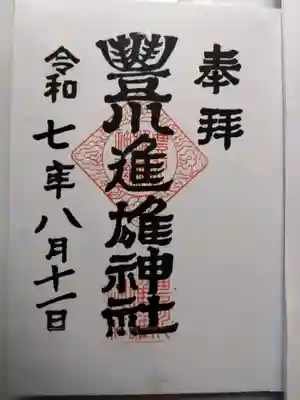 奉拝
豐川進雄神社
令和七年八月十一日